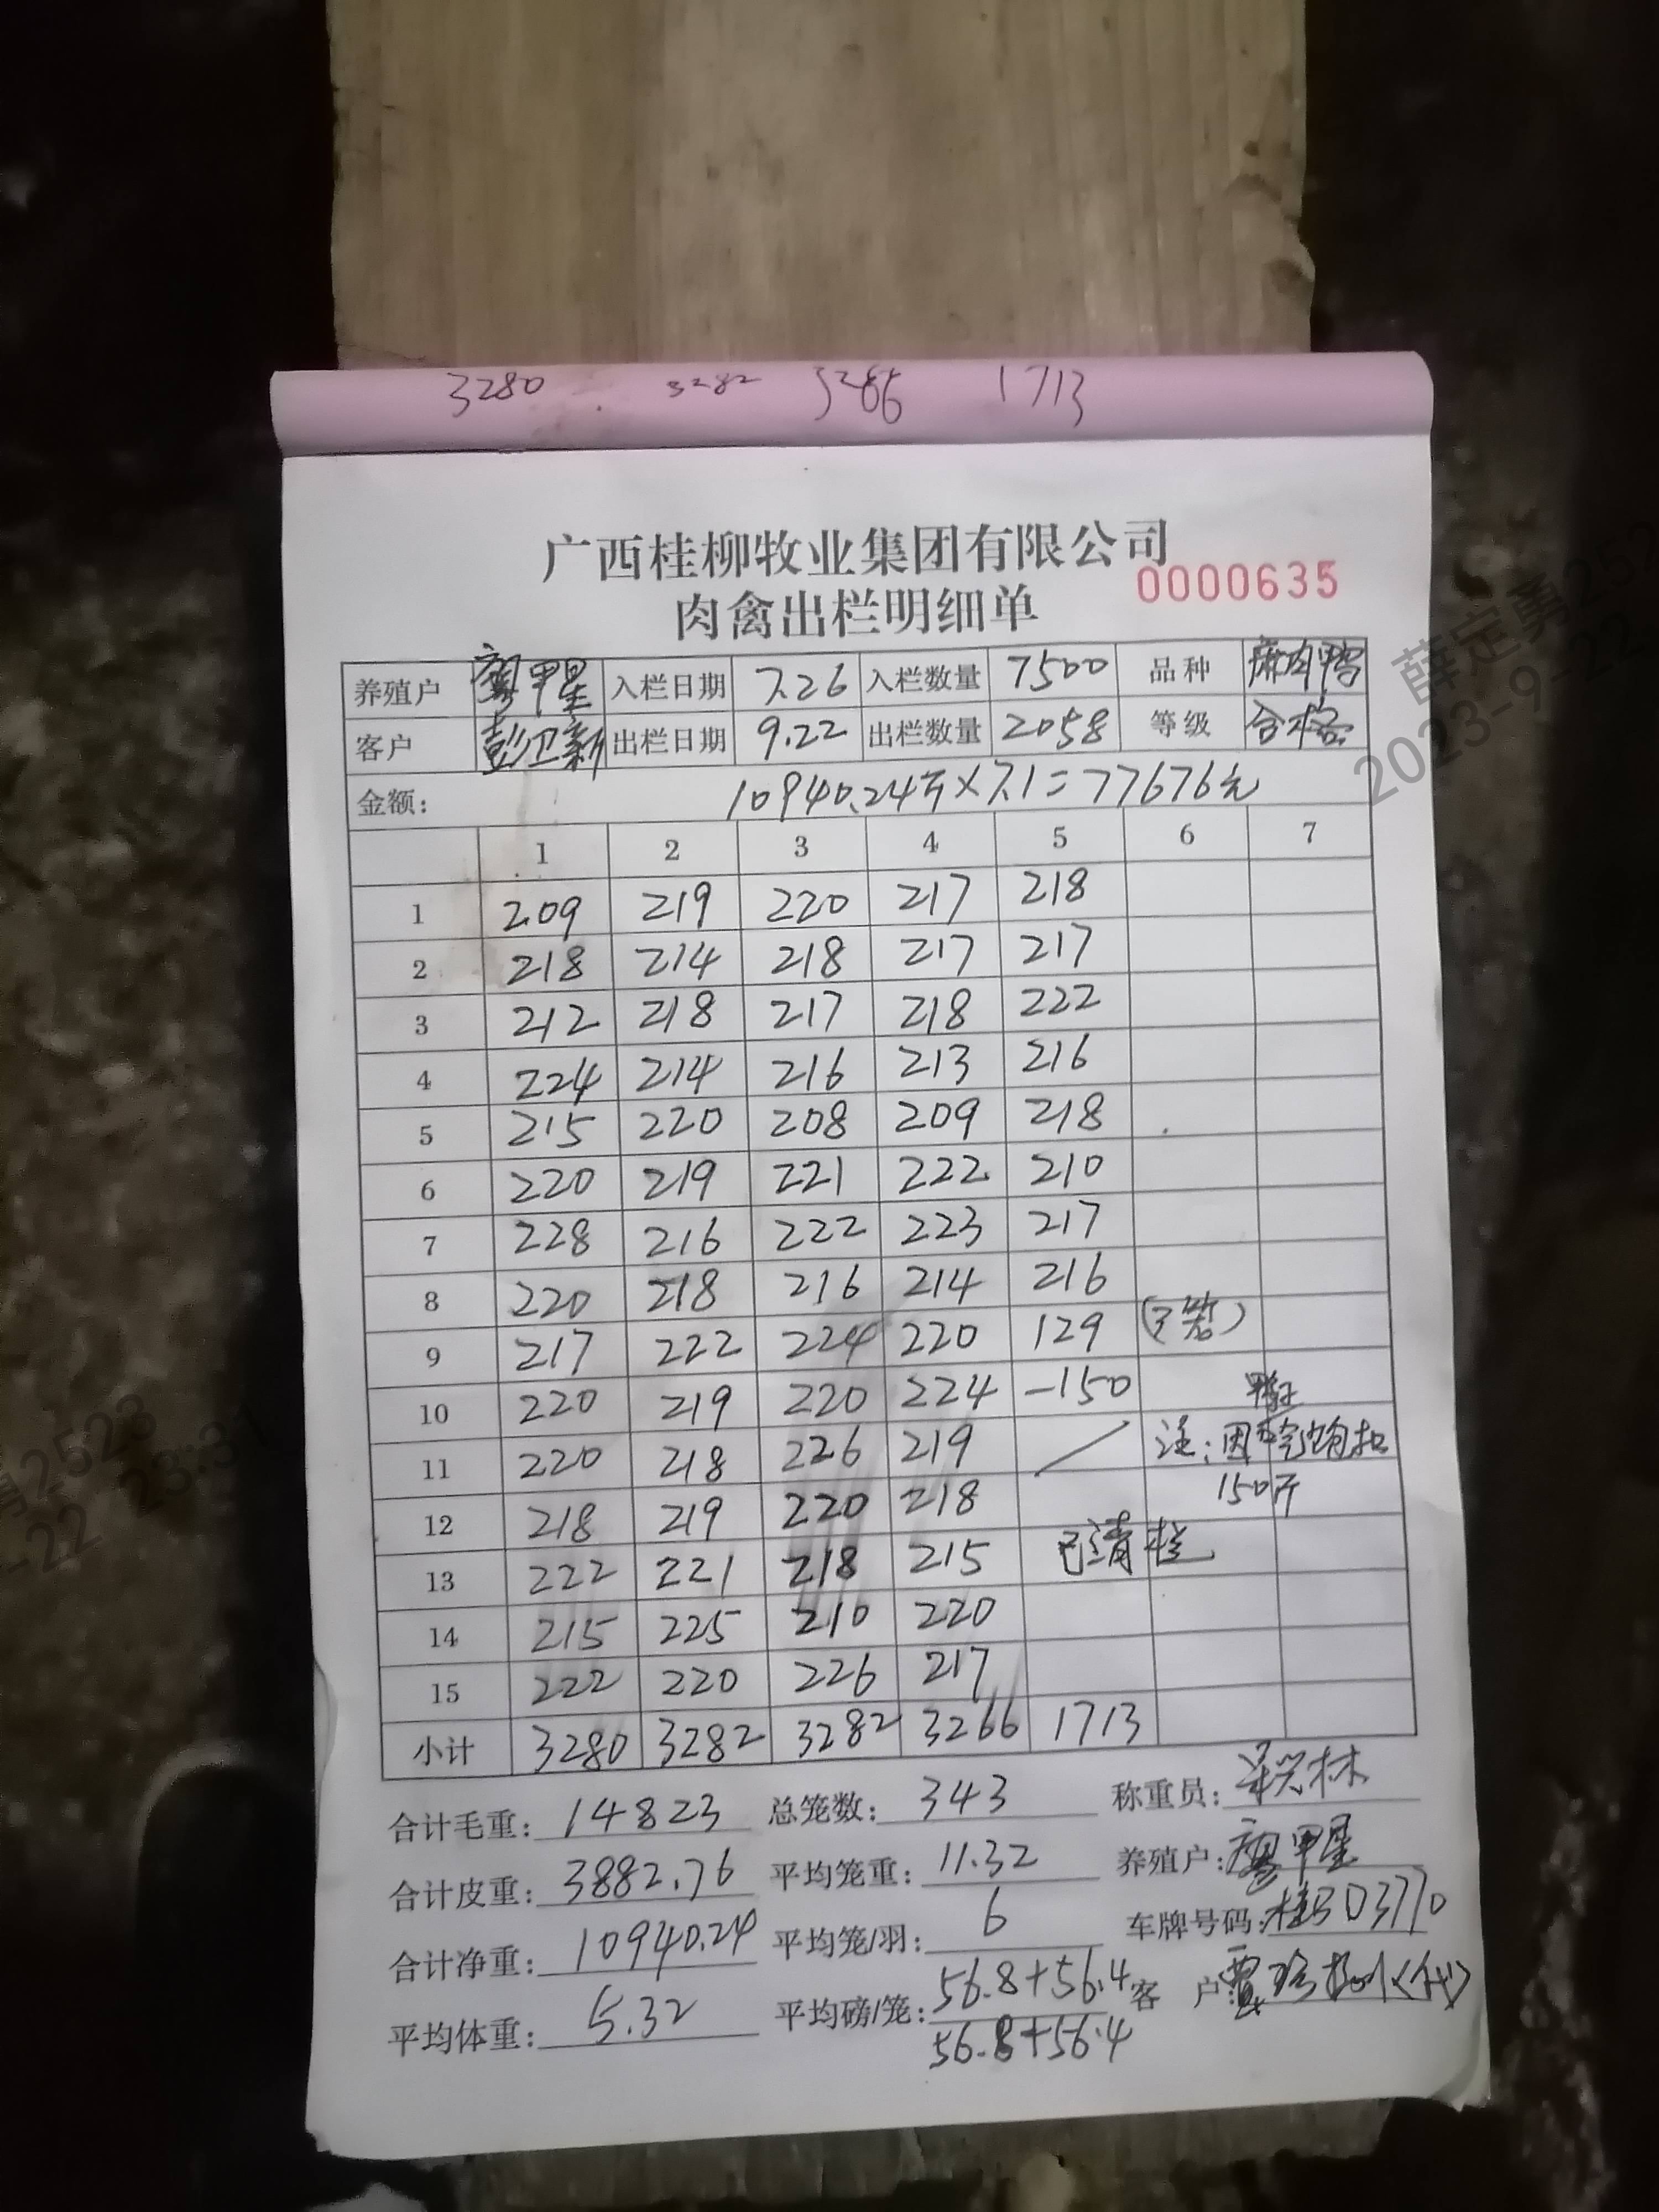 3280 3282 3286 1713
广西桂柳牧业集团有限公司
0000635
肉禽出栏明细单
养殖户 廖甲星 入栏日期 7.26 入栏数量 7500 品种 麻肉鸭
客户 彭卫新 出栏日期 9.22 出栏数量 2058 等级 合格
金额: 10940.24斤×7.1=77676元
1 2 3 4 5 6 7
1 209 219 220 217 218
2 218 214 218 217 217
3 212 218 217 218 222
4 224 214 216 213 216
5 215 220 208 209 218
6 220 219 221 222 210
7 228 216 222 223 217
8 220 218 216 214 216
9 217 222 224 220 129
10 220 219 220 224 -150
11 220 218 226 219 注:因 扣
12 218 219 220 218 150斤
13 222 221 218 215 已清栏
14 215 225 210 220
15 222 220 226 217
小计 3280 3282 3282 3266 1713
合计毛重: 14823 总笼数: 343 称重员:
合计皮重: 3882.76 平均笼重: 11.32 养殖户: 廖甲星
合计净重: 10940.24 平均笼/羽: 6 车牌号码: D3770
平均体重: 5.32 平均磅/笼: 56.8+56.4 客 户
56.8+56.4
薛定勇252
2023-9-22
勇2523
-22 23:31